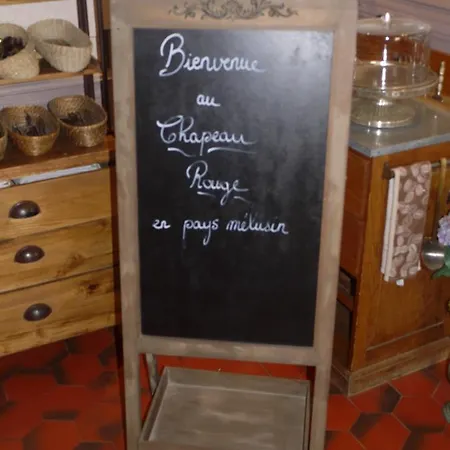 Bienvenue
au
Chapeau
Rouge
en pays mélusin